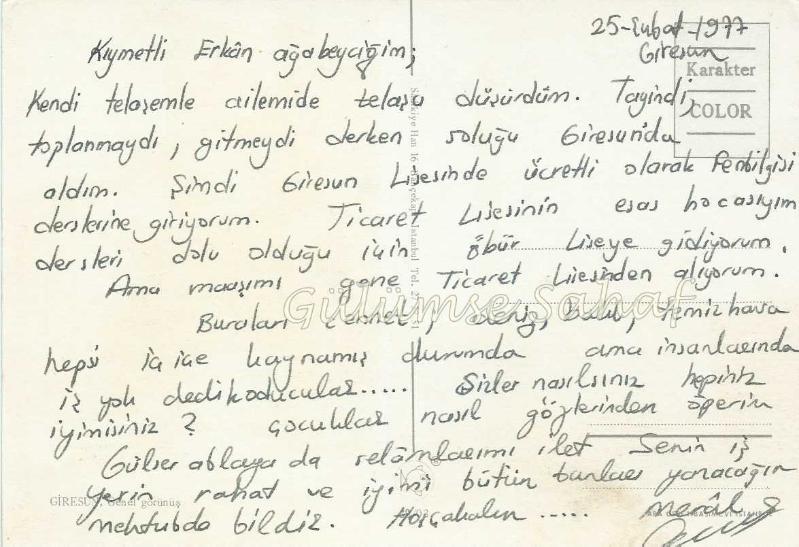 25-Şubat-1977
Giresun
Kıymetli Erkân ağabeyciğim;
Kendi telaşemle ailemide telaşa düşürdüm. Tayindi,
toplanmaydı, gitmeydi derken soluğu Giresun'da
aldım. Şimdi Giresun Lisesinde ücretli olarak Fenbilgisi
derslerine giriyorum. Ticaret Lisesinin esas hocasıyım
dersleri dolu olduğu için öbür Liseye gidiyorum.
Ama maaşımı gene Ticaret Lisesinden alıyorum.
Buraları cennet, deniz, balık, temiz hava
hepsi içiçe kaynamış durumda ama insanlarında
iş yok dedikoducular..... Sizler nasılsınız hepiniz
iyimisiniz? Çocuklar nasıl gözlerinden öperim
Gülser ablaya da selâmlarımı ilet Senin iş
yerin rahat ve iyimi bütün bunları yanacağın
mektubda bildir. Hoşçakalın ..... Merâl
Karakter
COLOR
Gülümse Sahaf
GİRESUN, Genel görünüş